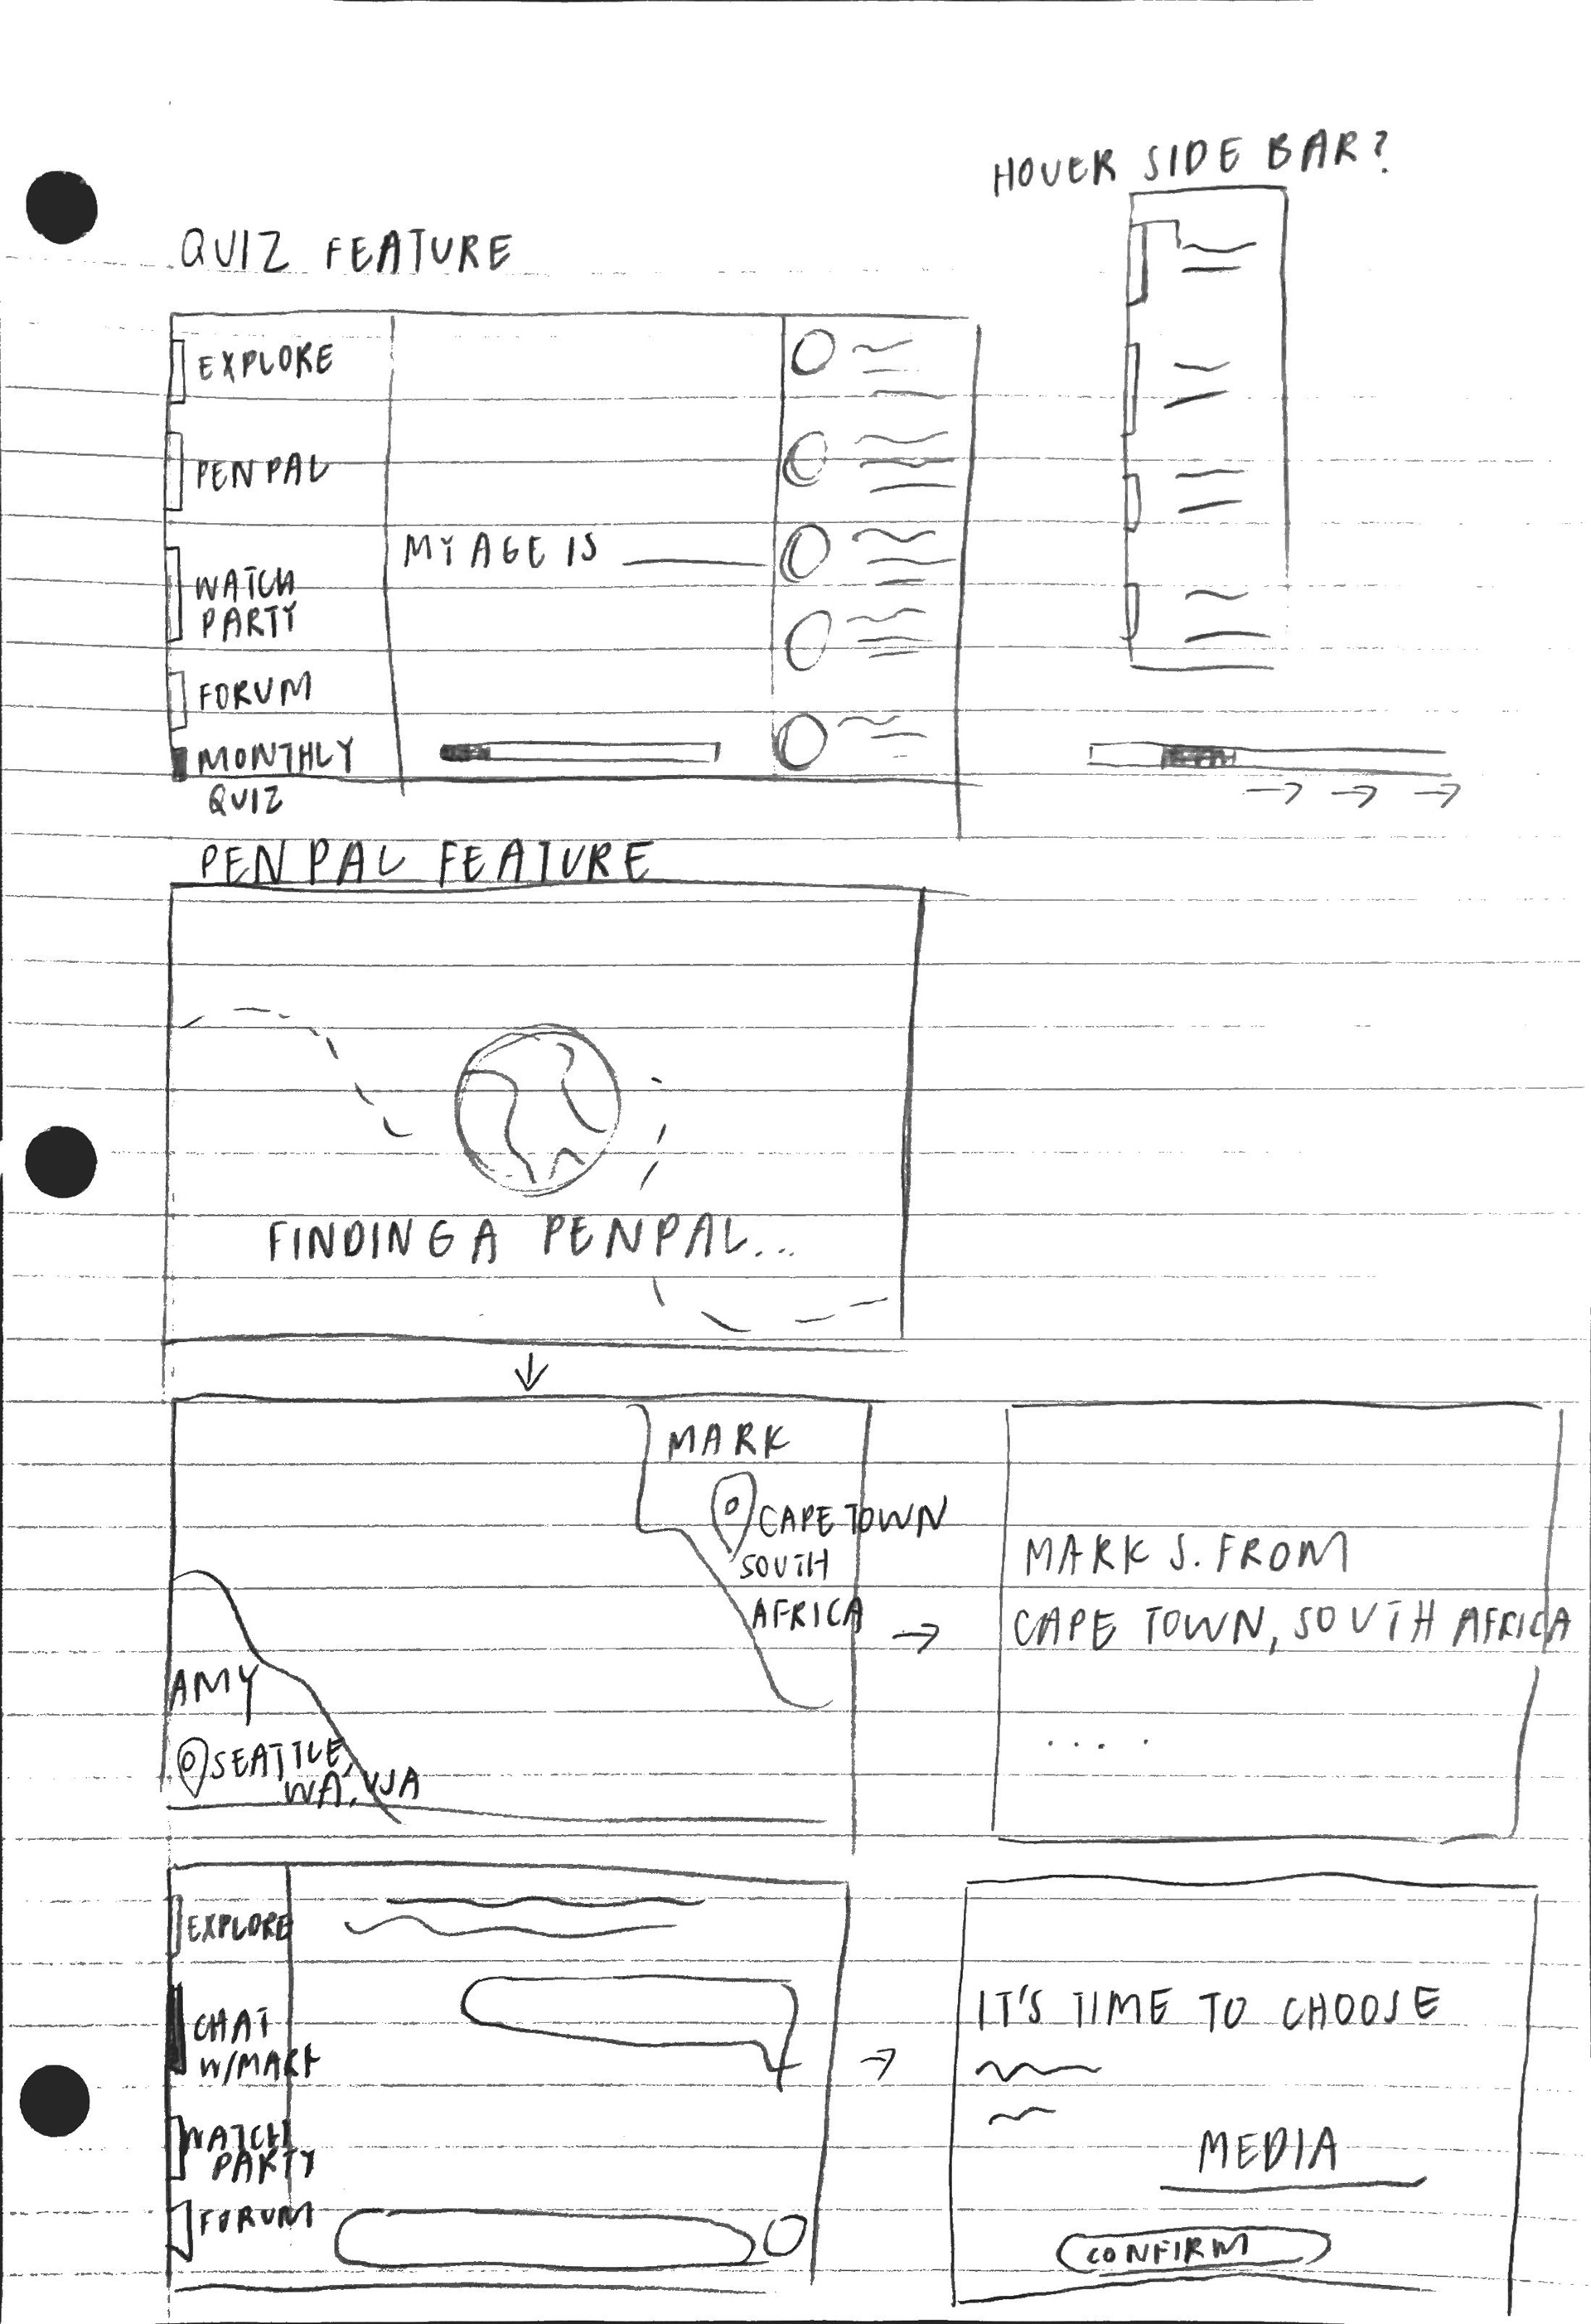 HOVER SIDE BAR?
QUIZ FEATURE
EXPLORE
PENPAL
MY AGE IS
WATCH
PARTY
FORUM
MONTHLY
QUIZ
PENPAL FEATURE
FINDING A PENPAL...
MARK
CAPE TOWN
SOUTH
AFRICA
AMY
SEATTLE,
WA, USA
MARK S. FROM
CAPE TOWN, SOUTH AFRICA
....
EXPLORE
CHAT
W/MARK
WATCH
PARTY
FORUM
IT'S TIME TO CHOOSE
MEDIA
CONFIRM